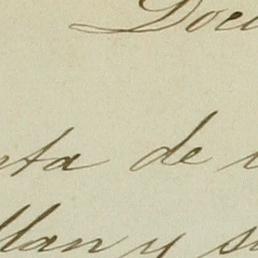 Docu
nta de
llan y su